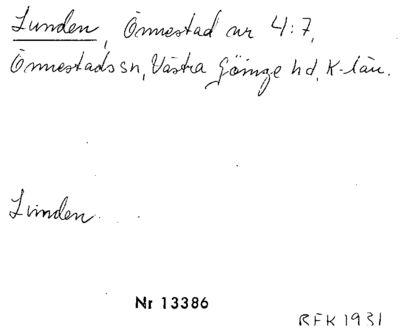 Lunden, Önnestad nr 4:7,
Önnestads sn, Västra Göinge hd, K-län.
Lunden
Nr 13386
RFK 1931